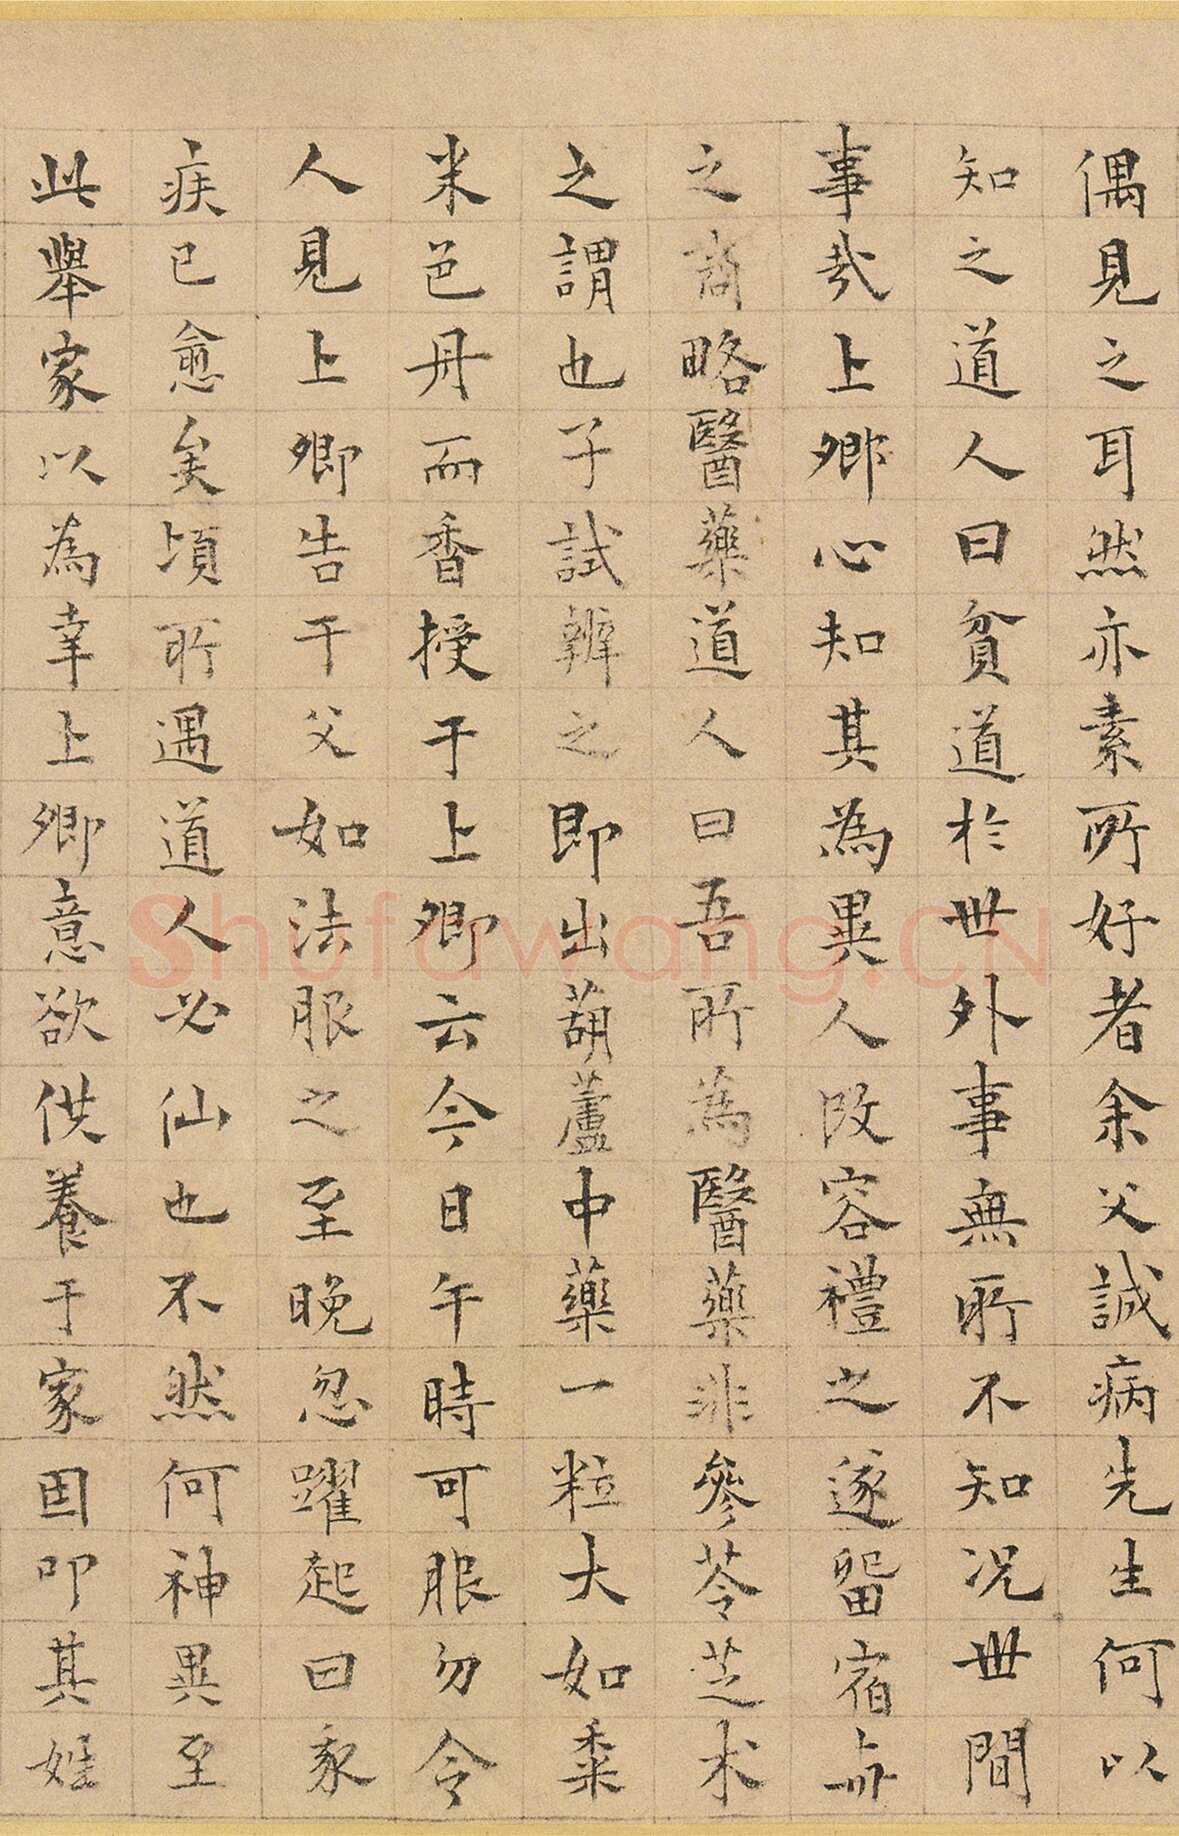 偶見之耳然亦素所好者余父誠病先生何以
知之道人曰貧道於世外事無所不知况世間
事哉上卿心知其為異人改容禮之遂留宿與
之商略醫藥道人曰吾所為醫藥非參苓芝朮
之謂也子試辨之即出葫蘆中藥一粒大如黍
米色丹而香授于上卿云今日午時可服勿令
人見上卿告于父如法服之至晚忽躍起曰我
疾已愈矣頃所遇道人必仙也不然何神異至
此舉家以為幸上卿意欲供養于家因叩其姓
Shufawang.CN